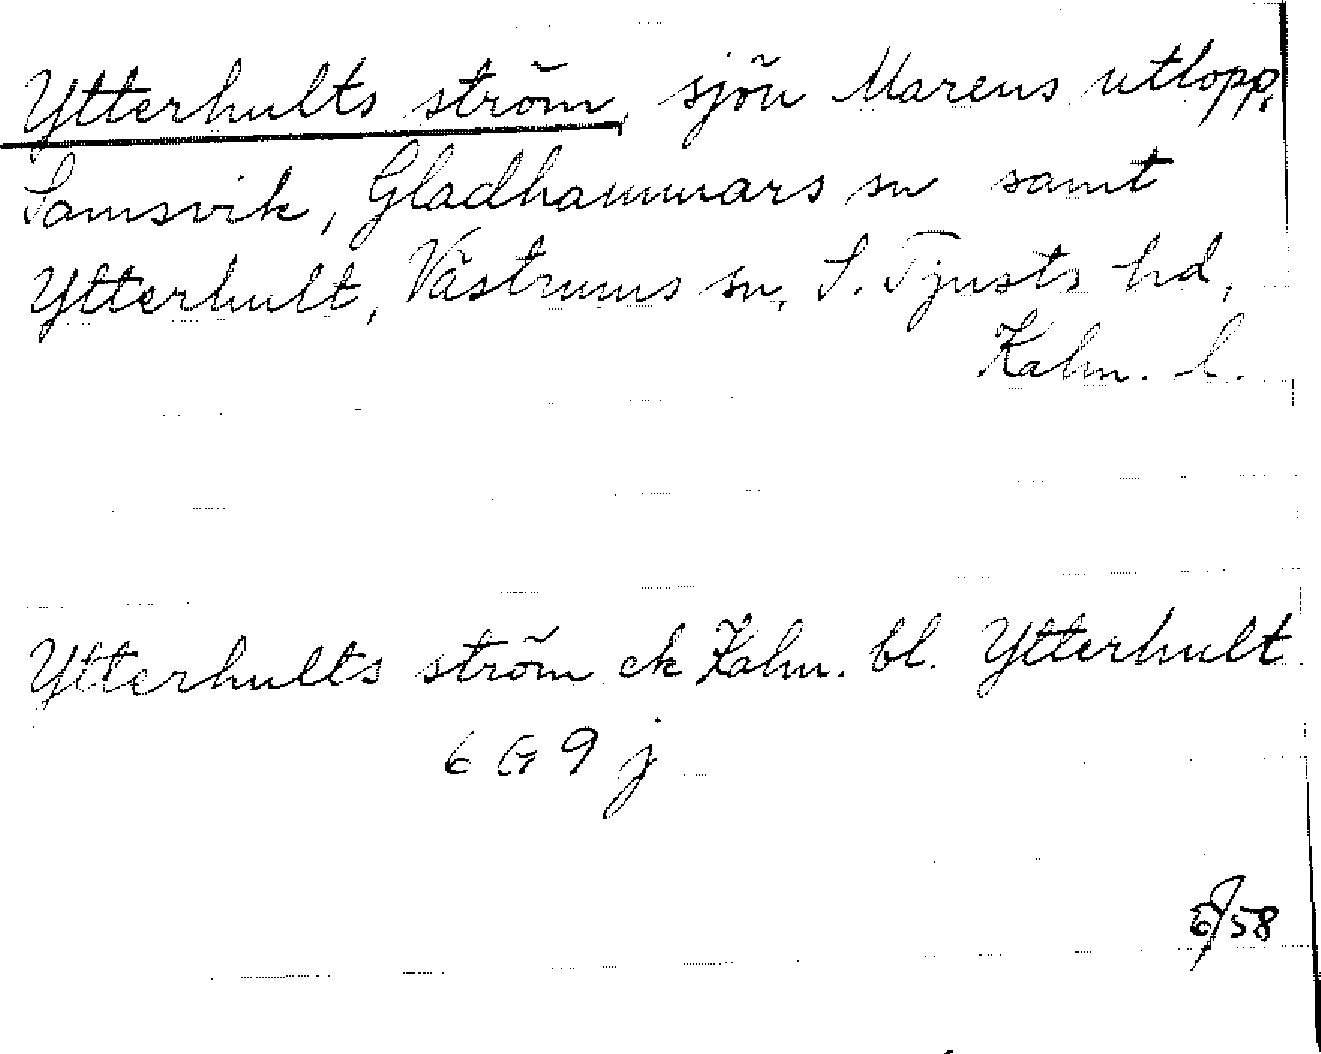 Ytterhults ström, sjön Marens utlopp,
Samsvik, Gladhammars sn samt
Ytterhult, Västrums sn, S. Tjusts hd,
Kalm. l.
Ytterhults ström ek Kalm. bl. Ytterhult
6 G 9 j
58